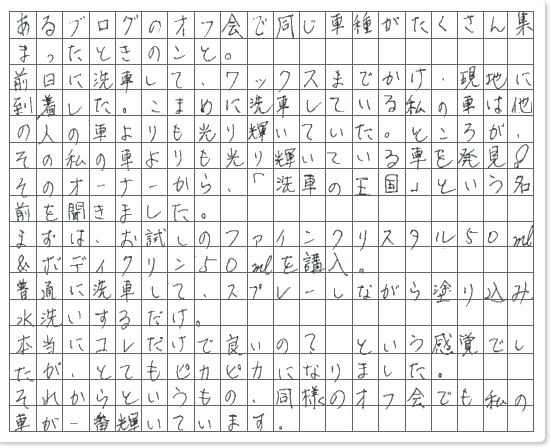 あるブログのオフ会で同じ車種がたくさん集
まったときのこと。
前日に洗車して、ワックスまでかけ、現地に
到着した。こまめに洗車している私の車は他
の人の車よりも光り輝いていた。ところが、
その私の車よりも光り輝いている車を発見!
そのオーナーから、「洗車の王国」という名
前を聞きました。
まずは、お試しのファインクリスタル50ml
&ボディクリン50mlを購入。
普通に洗車して、スプレーしながら塗り込み
水洗いするだけ。
本当にコレだけで良いの？という感覚でし
たが、とてもピカピカになりました。
それからというもの、同様のオフ会でも私の
車が一番輝いています。